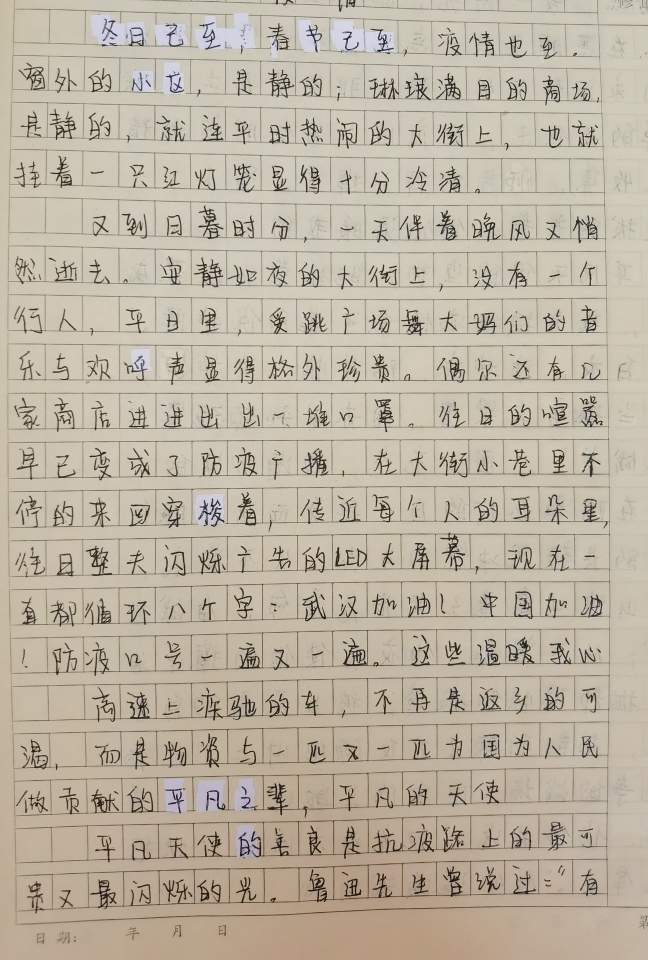 冬日已至，春节已至，疫情也至。
窗外的小区，是静的；琳琅满目的商场，
是静的，就连平时热闹的大街上，也就
挂着一只红灯笼显得十分冷清。
又到日暮时分，一天伴着晚风又悄
然逝去。安静如夜的大街上，没有一个
行人，平日里，爱跳广场舞大妈们的音
乐与欢呼声显得格外珍贵。偶尔还有几
家商店进进出出一堆口罩。往日的喧嚣
早已变成了防疫广播，在大街小巷里不
停的来回穿梭着，传近每个人的耳朵里，
往日整天闪烁广告的LED大屏幕，现在一
直都循环八个字：武汉加油！中国加油
！防疫口号一遍又一遍。这些温暖我心
高速上疾驰的车，不再是返乡的可
渴，而是物资与一匹又一匹为国为人民
做贡献的平凡之辈，平凡的天使
平凡天使的善良是抗疫路上的最可
贵又最闪烁的光。鲁迅先生曾说过："有
日期： 年 月 日